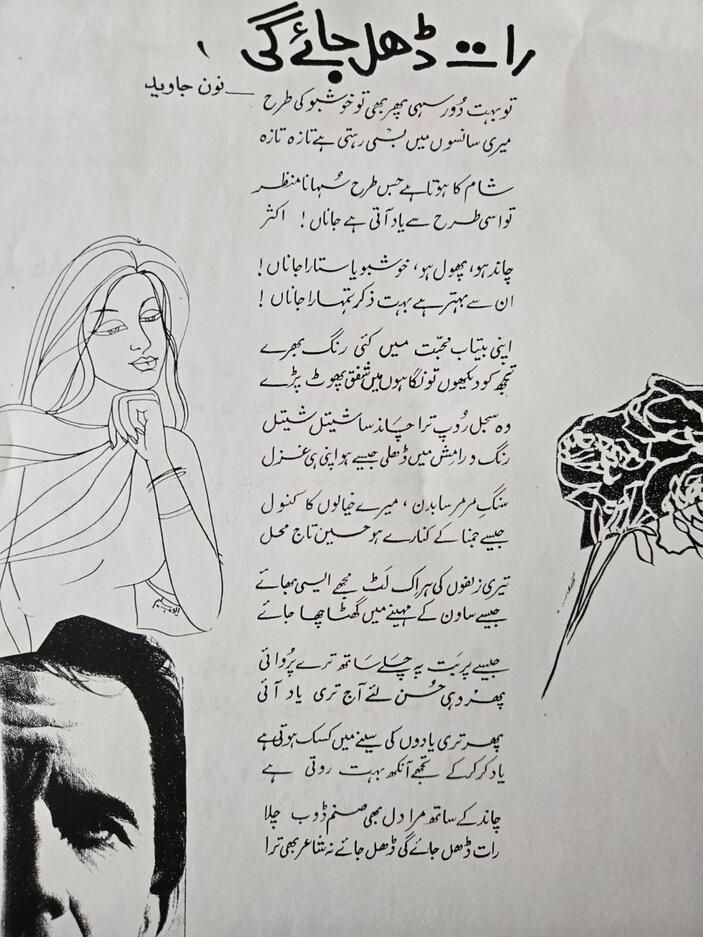 رات ڈھل جائے گی
نون جاوید
تو بہت دُور سہی پھر بھی تو خوشبو کی طرح
میری سانسوں میں بسی رہتی ہے تازہ تازہ
شام کا ہوتا ہے جس طرح سُہانا منظر
تو اسی طرح سے یاد آتی ہے جاناں ! اکثر
چاند ہو، پھول ہو، خوشبو یا ستارا جاناں !
ان سے بہتر ہے بہت ذکر تمہارا جاناں !
اپنی بیتاب محبّت میں کئی رنگ بھرے
تجھ کو دیکھوں تو نگاہوں میں شفق پھوٹ پڑے
وہ سجل رُوپ ترا چاند سا شیتل شیتل
رنگ و رامش میں ڈھلی جیسے ہو اپنی ہی غزل
سنگِ مرمر سا بدن ، میرے خیالوں کا کنول
جیسے جمنا کے کنارے ہو حسین تاج محل
تیری زلفوں کی ہر اک لَٹ مجھے ایسی بھائے
جیسے ساون کے مہینے میں گھٹا چھا جائے
جیسے پربَت پہ چلے ساتھ ترے پُروائی
پھر وہی حُسن لئے آج تری یاد آئی
پھر تری یادوں کی سینے میں کسک ہوتی ہے
یاد کر کر کے تجھے آنکھ بہت روتی ہے
چاند کے ساتھ مرا دل بھی صنم ڈوب چلا
رات ڈھل جائے گی ڈھل جائے نہ شاعر بھی ترا